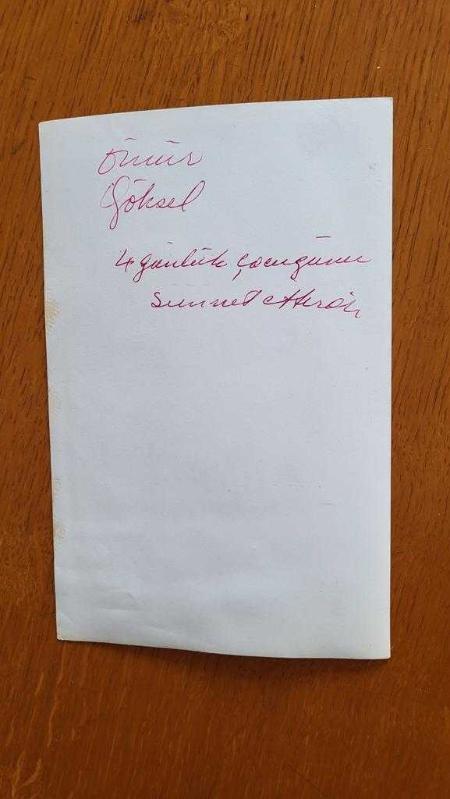 Ömür
Göksel
4 günlük çocuğunu
sünnet ettirdi